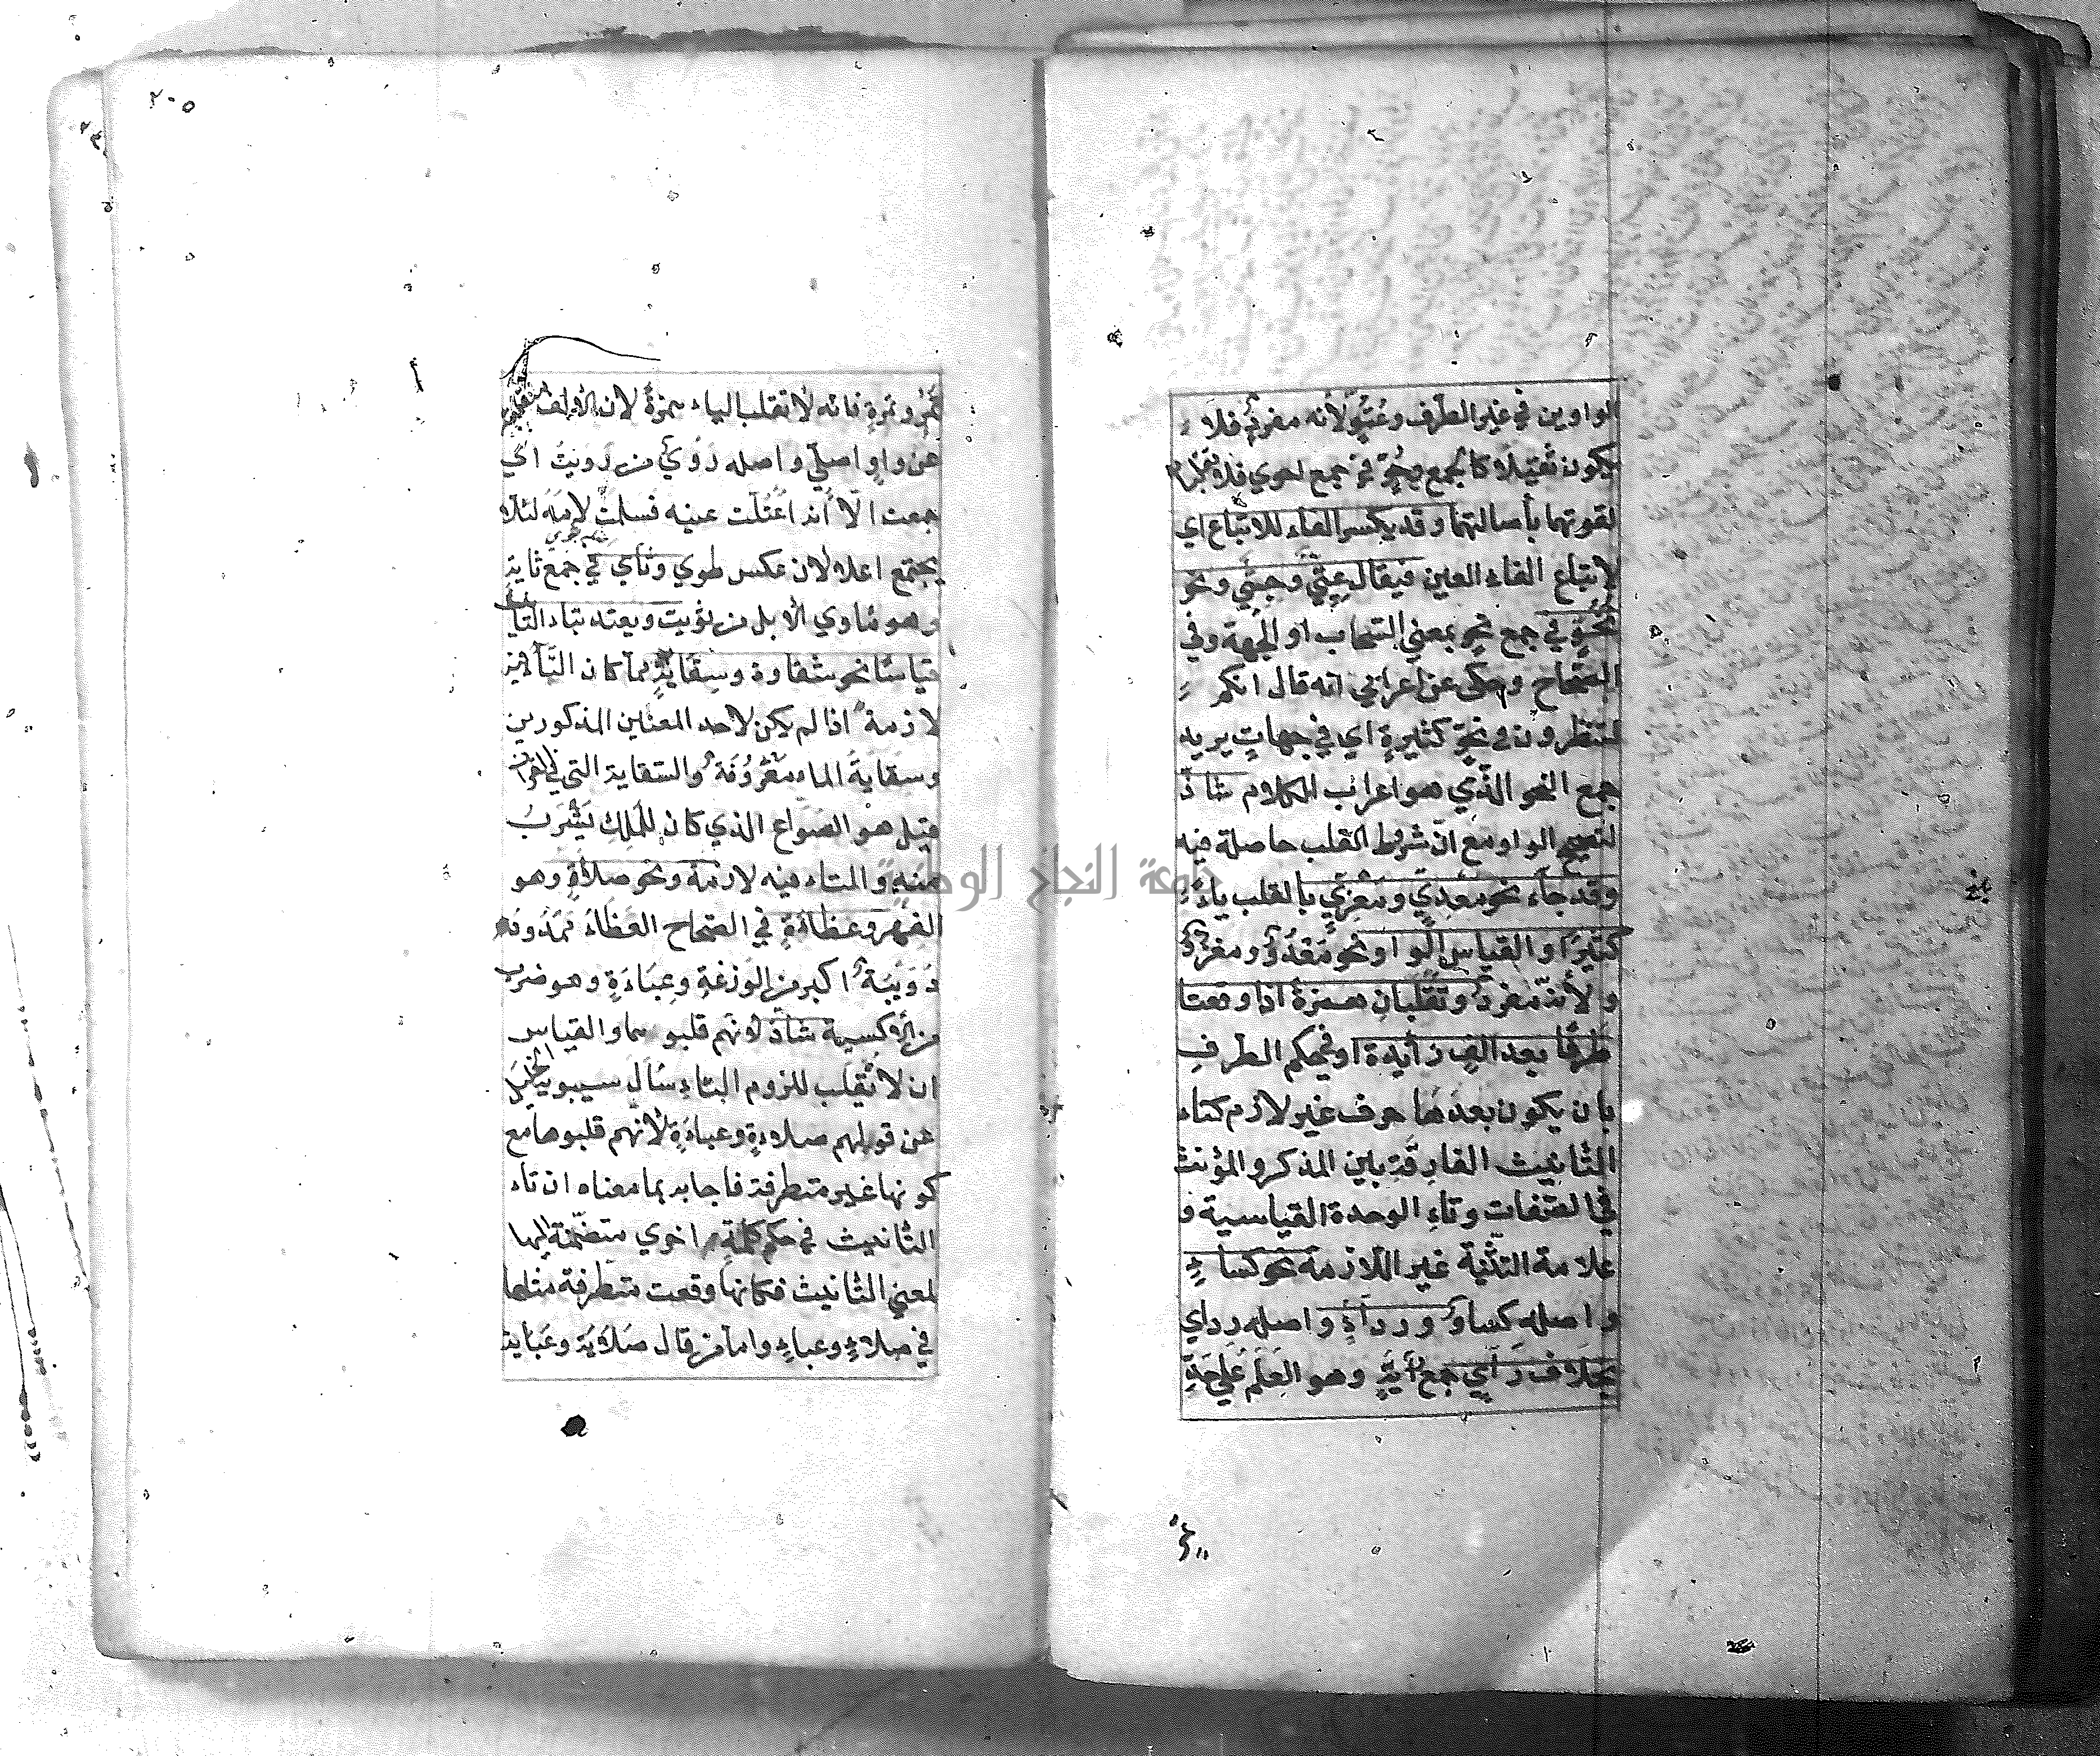 الواوين في غير الطرف وعُتُوٍّ لأنه مفردٌ فلا
يكون ثقيلا كالجمع في جمع فلا
لقوتها بأصالتها وقد يكسر الفاء للاتباع اي
لاتباع الفاء العين فيقال عِتِيٌّ وجِثِيٌّ ونحو
نُحُوٍّ في جمع نحو بمعني السحاب او الجهة وفي
الصحاح وحكى عن اعرابي انه قال انكم
لتنظرون في نحوٍّ كثيرةٍ اي في جهاتٍ يريد
جمع النحو الذي هو اعراب الكلام شاذ
لتصحيح الواو مع ان شرط القلب حاصلة فيه
وقد جاء نحو معدِيّ ومغزِيّ بالقلب ياءً
كثيرًا والقياس الواو نحو مَعْدُوٌّ ومغزوٌّ
ولأنه مفردٌ وتقلبان همزةً اذا وقعتا
طرفًا بعد الفٍ زايدة او في حكم الطرف
بان يكون بعدها حرف غير لازم كتاء
التانيث الفارقة بين المذكر والمؤنث
في الصفات وتاء الوحدة القياسية و
علامة التثنية غير اللازمة نحو كساءٍ
واصله كساوٌ ورداءٍ واصله رداي
بخلاف راي جمع رايةٍ وهو العلم علي حدِّ
تمر وتمرةٍ فانه لا تقلب الياء همزةً لان الالف منقلبة
عن واوٍ اصلي واصله رَوَيٌ من رويتُ اي
جمعت الّا انه اعتلّت عينه فسلمت لامَهُ لئلا
يجتمع اعلالان عكس طوي وثاي في جمع ثايةٍ
وهو ماوي الابل من ثويت ويعتد بتاء التانيث
قياسًا نحو شقاوة وسِقايةٍ مما كان التأنيث
لازمةً اذا لم يكن لاحد المعنيين المذكورين
وسقايةُ الماء معْرُوفَةٌ والسقاية التي في القران
قيل هو الصواع الذي كان للملِكِ يَشْرَبُ
منه والتاء فيه لازمة ونحو صلاءةٍ وهو
الفهر وعظاءةٍ في الصحاح العَظَاءُ ممدودة
دُوَيْبَةٌ اكبر من الوَزغةِ وعباءةٍ وهو ضرب
من الاكسية شاذ لانهم قلبوهما والقياس
ان لا تُقْلب للزوم التاء سال سيبويه الخليل
عن قولهم صلاءةٍ وعباءةٍ لأنهم قلبوها مع
كونها غير متطرفة فاجابه بما معناه ان تاء
التانيث في حكم كلمةٍ اخري متضمّنة اليها
لمعني التانيث فكانها وقعت متطرفة مثلها
في صلاءٍ وعباءٍ واما من قال صَلايَة وعَبَاية
٢٠٥
جامعة النجاح الوطنية